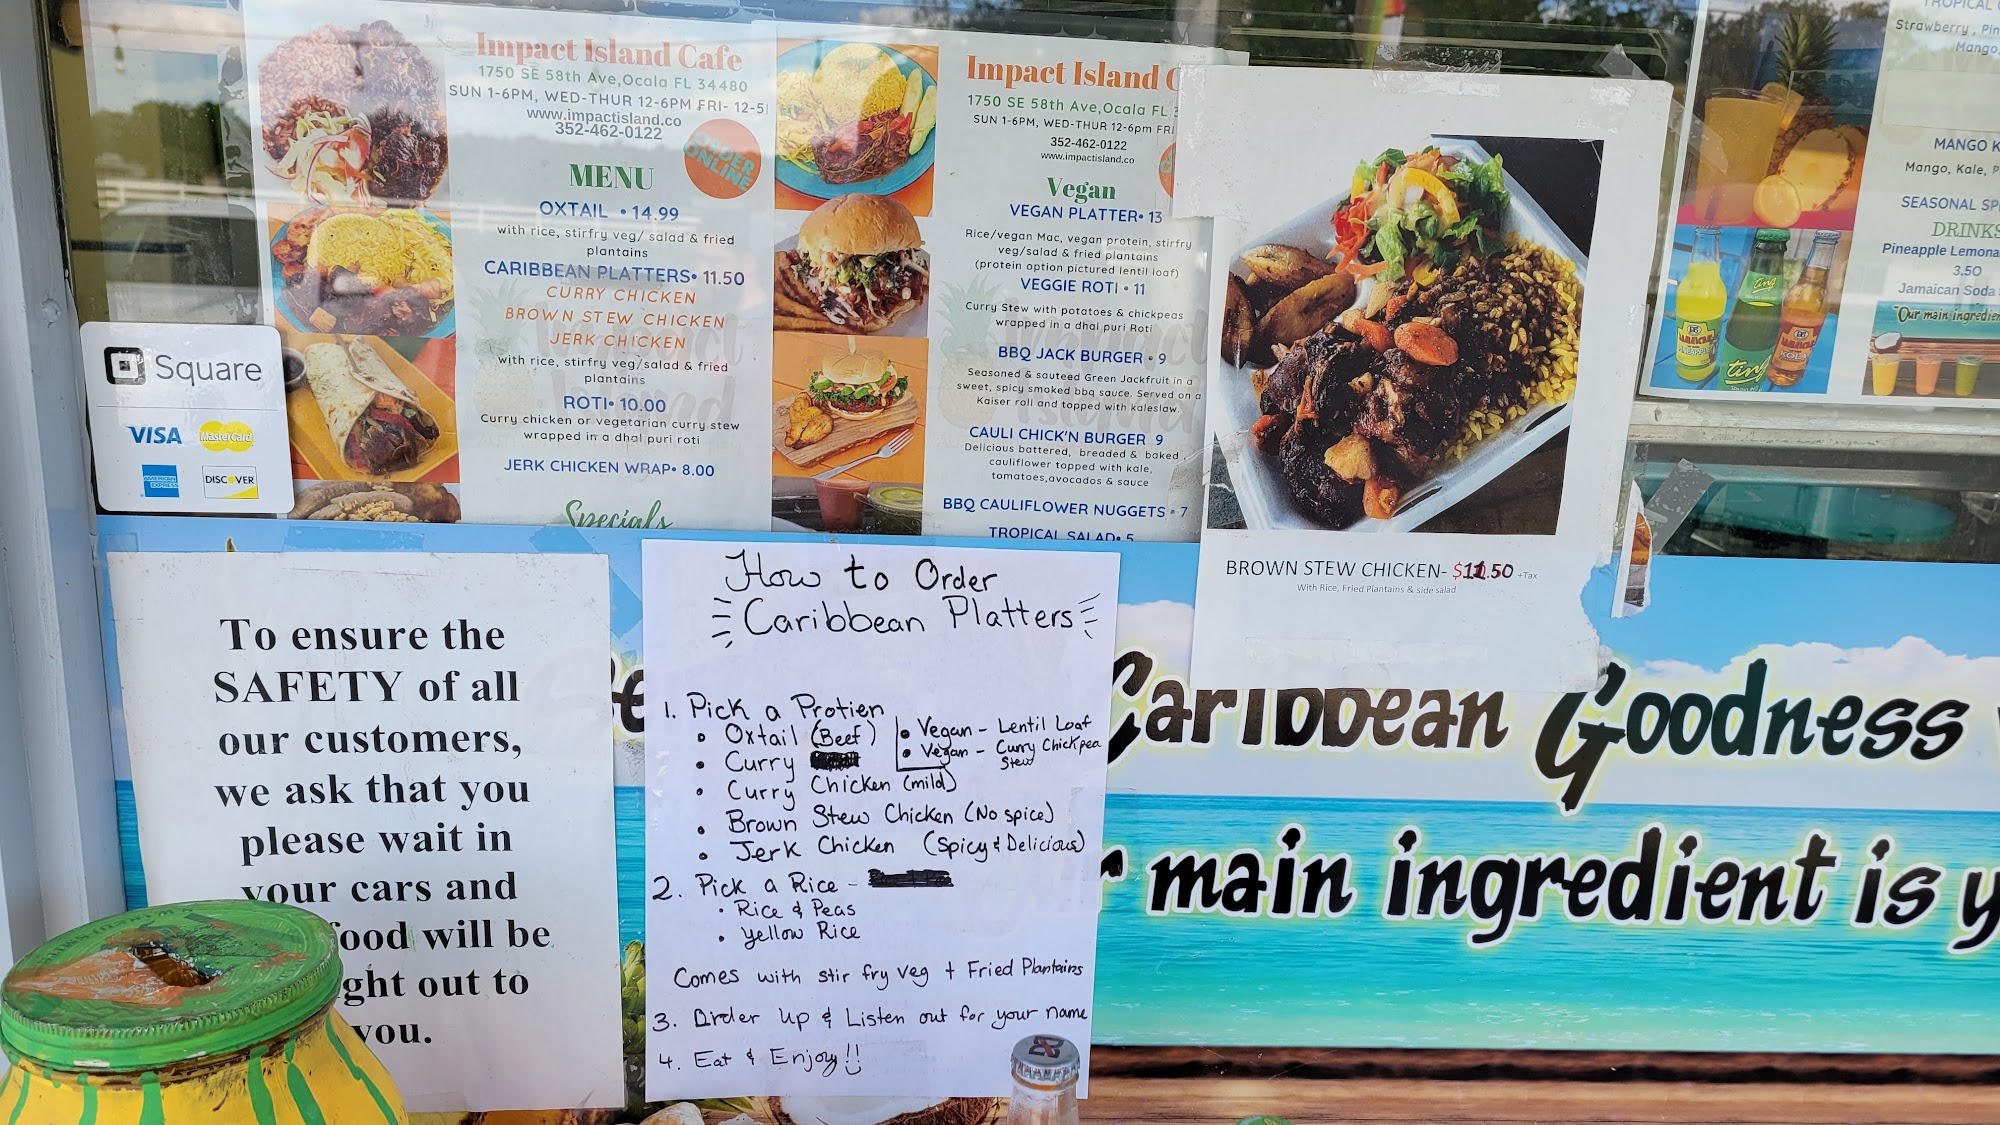 Impact Island Cafe
1750 SE 58th Ave,Ocala FL 34480
SUN 1-6PM, WED-THUR 12-6PM FRI- 12-5
www.impactisland.co
352-462-0122
ORDER
ONLINE
MENU
OXTAIL • 14.99
with rice, stirfry veg/ salad & fried
plantains
CARIBBEAN PLATTERS• 11.50
CURRY CHICKEN
BROWN STEW CHICKEN
JERK CHICKEN
with rice, stirfry veg/salad & fried
plantains
ROTI• 10.00
Curry chicken or vegetarian curry stew
wrapped in a dhal puri roti
JERK CHICKEN WRAP• 8.00
Specials
Impact Island C
1750 SE 58th Ave,Ocala FL
SUN 1-6PM, WED-THUR 12-6pm FRI
352-462-0122
www.impactisland.co
Vegan
VEGAN PLATTER• 13
Rice/vegan Mac, vegan protein, stirfry
veg/salad & fried plantains
(protein option pictured lentil loaf)
VEGGIE ROTI • 11
Curry Stew with potatoes & chickpeas
wrapped in a dhal puri Roti
BBQ JACK BURGER • 9
Seasoned & sauteed Green Jackfruit in a
sweet, spicy smoked bbq sauce. Served on a
Kaiser roll and topped with kaleslaw.
CAULI CHICK'N BURGER 9
Delicious battered, breaded & baked
cauliflower topped with kale,
tomatoes,avocados & sauce
BBQ CAULIFLOWER NUGGETS • 7
TROPICAL SALAD• 5
BROWN STEW CHICKEN- $11.50 +Tax
With Rice, Fried Plantains & side salad
TROPICAL
Strawberry , Pin
Mango,
MANGO K
Mango, Kale, P
SEASONAL SP
DRINKS
Pineapple Lemona
3.50
Jamaican Soda
"Our main ingredien
ting
ting
KOLA
Square
VISA
MasterCard
AMERICAN EXPRESS
DISCOVER
To ensure the
SAFETY of all
our customers,
we ask that you
please wait in
your cars and
food will be
ght out to
you.
How to Order
Caribbean Platters
1. Pick a Protien
• Oxtail (Beef)
• Curry
• Curry Chicken (mild)
• Brown Stew Chicken (No spice)
• Jerk Chicken (Spicy & Delicious)
• Vegan - Lentil Loaf
• Vegan - Curry Chickpea
Stew
2. Pick a Rice -
• Rice & Peas
• Yellow Rice
Comes with stir fry veg + Fried Plantains
3. Order Up & Listen out for your name
4. Eat & Enjoy!!
Caribbean Goodness
main ingredient is y